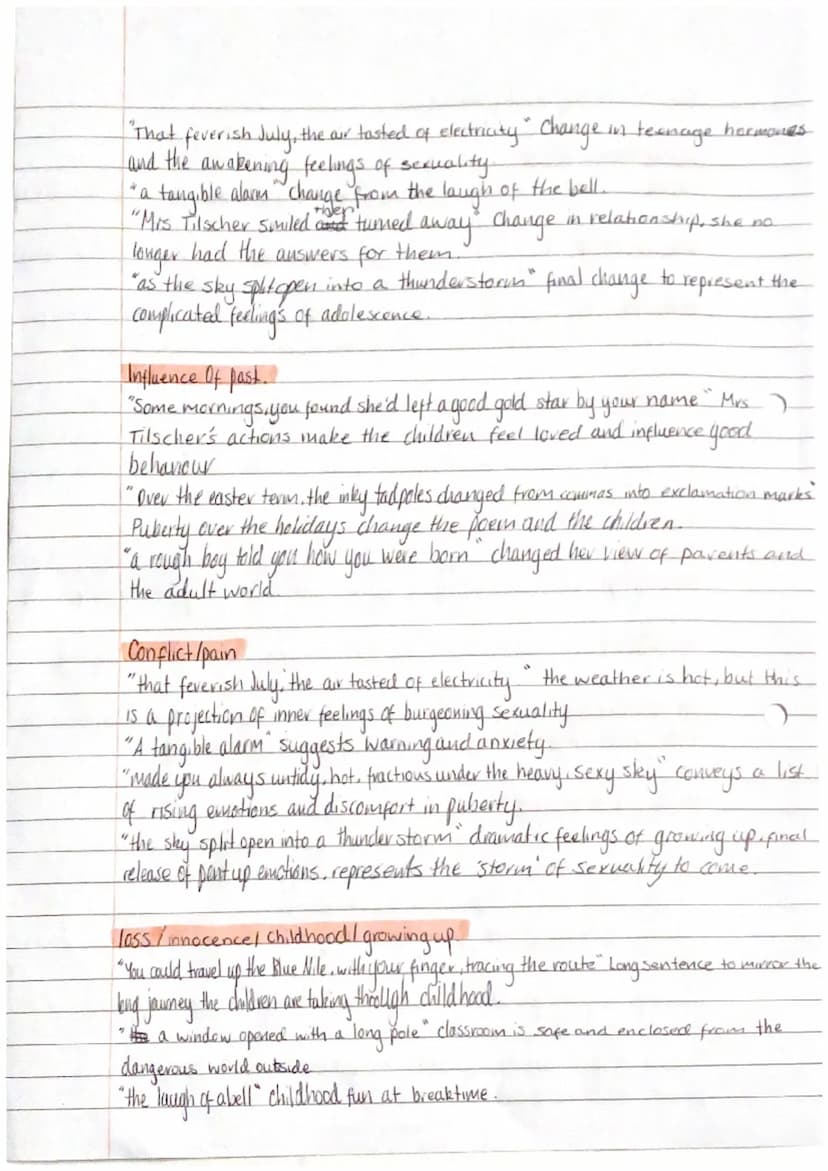 "That feverish July, the air tasted of electricity" Change in teenage hormones
and the awakening feelings of sexuality
"a tangible alarm" change from the laugh of the bell.
"Mrs Tilscher smiled then turned away" Change in relationship, she no
longer had the answers for them.
"as the sky split open into a thunderstorm" final change to represent the
complicated feelings of adolescence.
Influence Of past.
"Some mornings, you found she'd left a good gold star by your name" Mrs
Tilscher's actions make the children feel loved and influence good
behaviour
"Over the easter term, the inky tadpoles changed from commas into exclamation marks"
Puberty over the holidays change the poem and the children.
"a rough boy told you how you were born" changed her view of parents and
the adult world.
Conflict/pain
"that feverish July, the air tasted of electricity" the weather is hot, but this
is a projection of inner feelings of burgeoning sexuality
"A tangible alarm" suggests warning and anxiety.
"made you always untidy, hot, fractious under the heavy, sexy sky" conveys a list
of rising emotions and discomfort in puberty.
"the sky split open into a thunder storm" dramatic feelings of growing up, final
release of pent up emotions, represents the 'storm' of sexuality to come.
loss/innocence/childhood/growing up.
"You could travel up the Blue Nile, with your finger, tracing the route" Long sentence to mirror the
long journey the children are taking through childhood.
"a window opened with a long pole" classroom is safe and enclosed from the
dangerous world outside
"the laugh of a bell" childhood fun at breaktime.